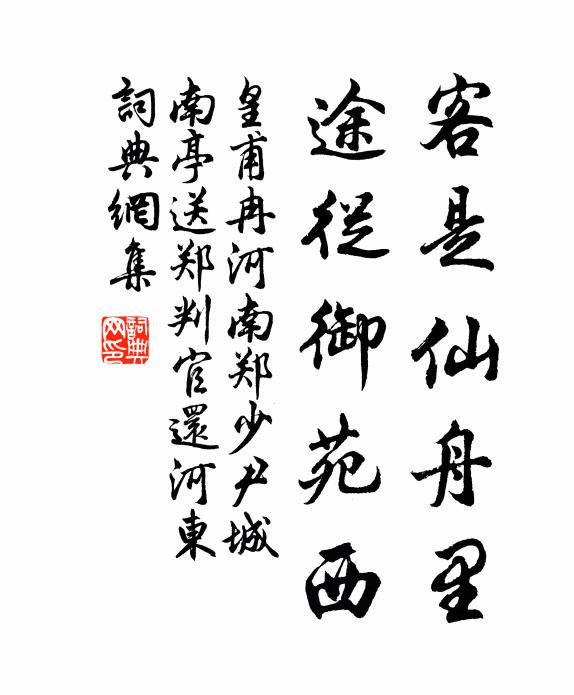 客是仙舟里
途從御苑西
皇甫冉河南郑少尹城
南亭送郑判官還河東
詞典網集
詞典網印